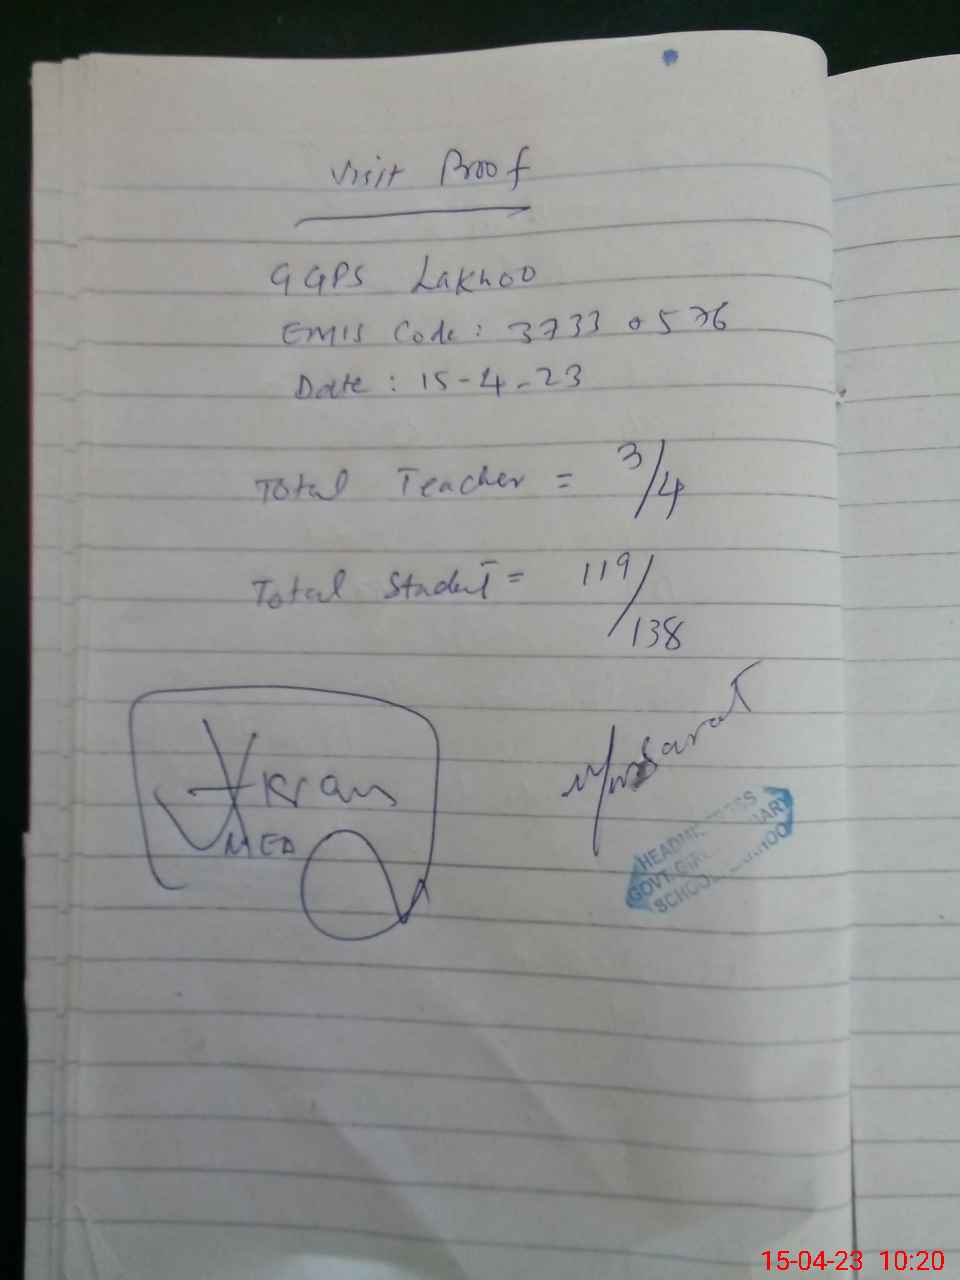 Visit Proof
GGPS Lakhoo
EMIS Code: 37330576
Date: 15-4-23
Total Teacher = 3/4
Total Student = 119/138
Ikram
MEA
Musarat
HEADMISTRESS
GOVT. GIRLS PRIMARY
SCHOOL LAKHOO
15-04-23 10:20